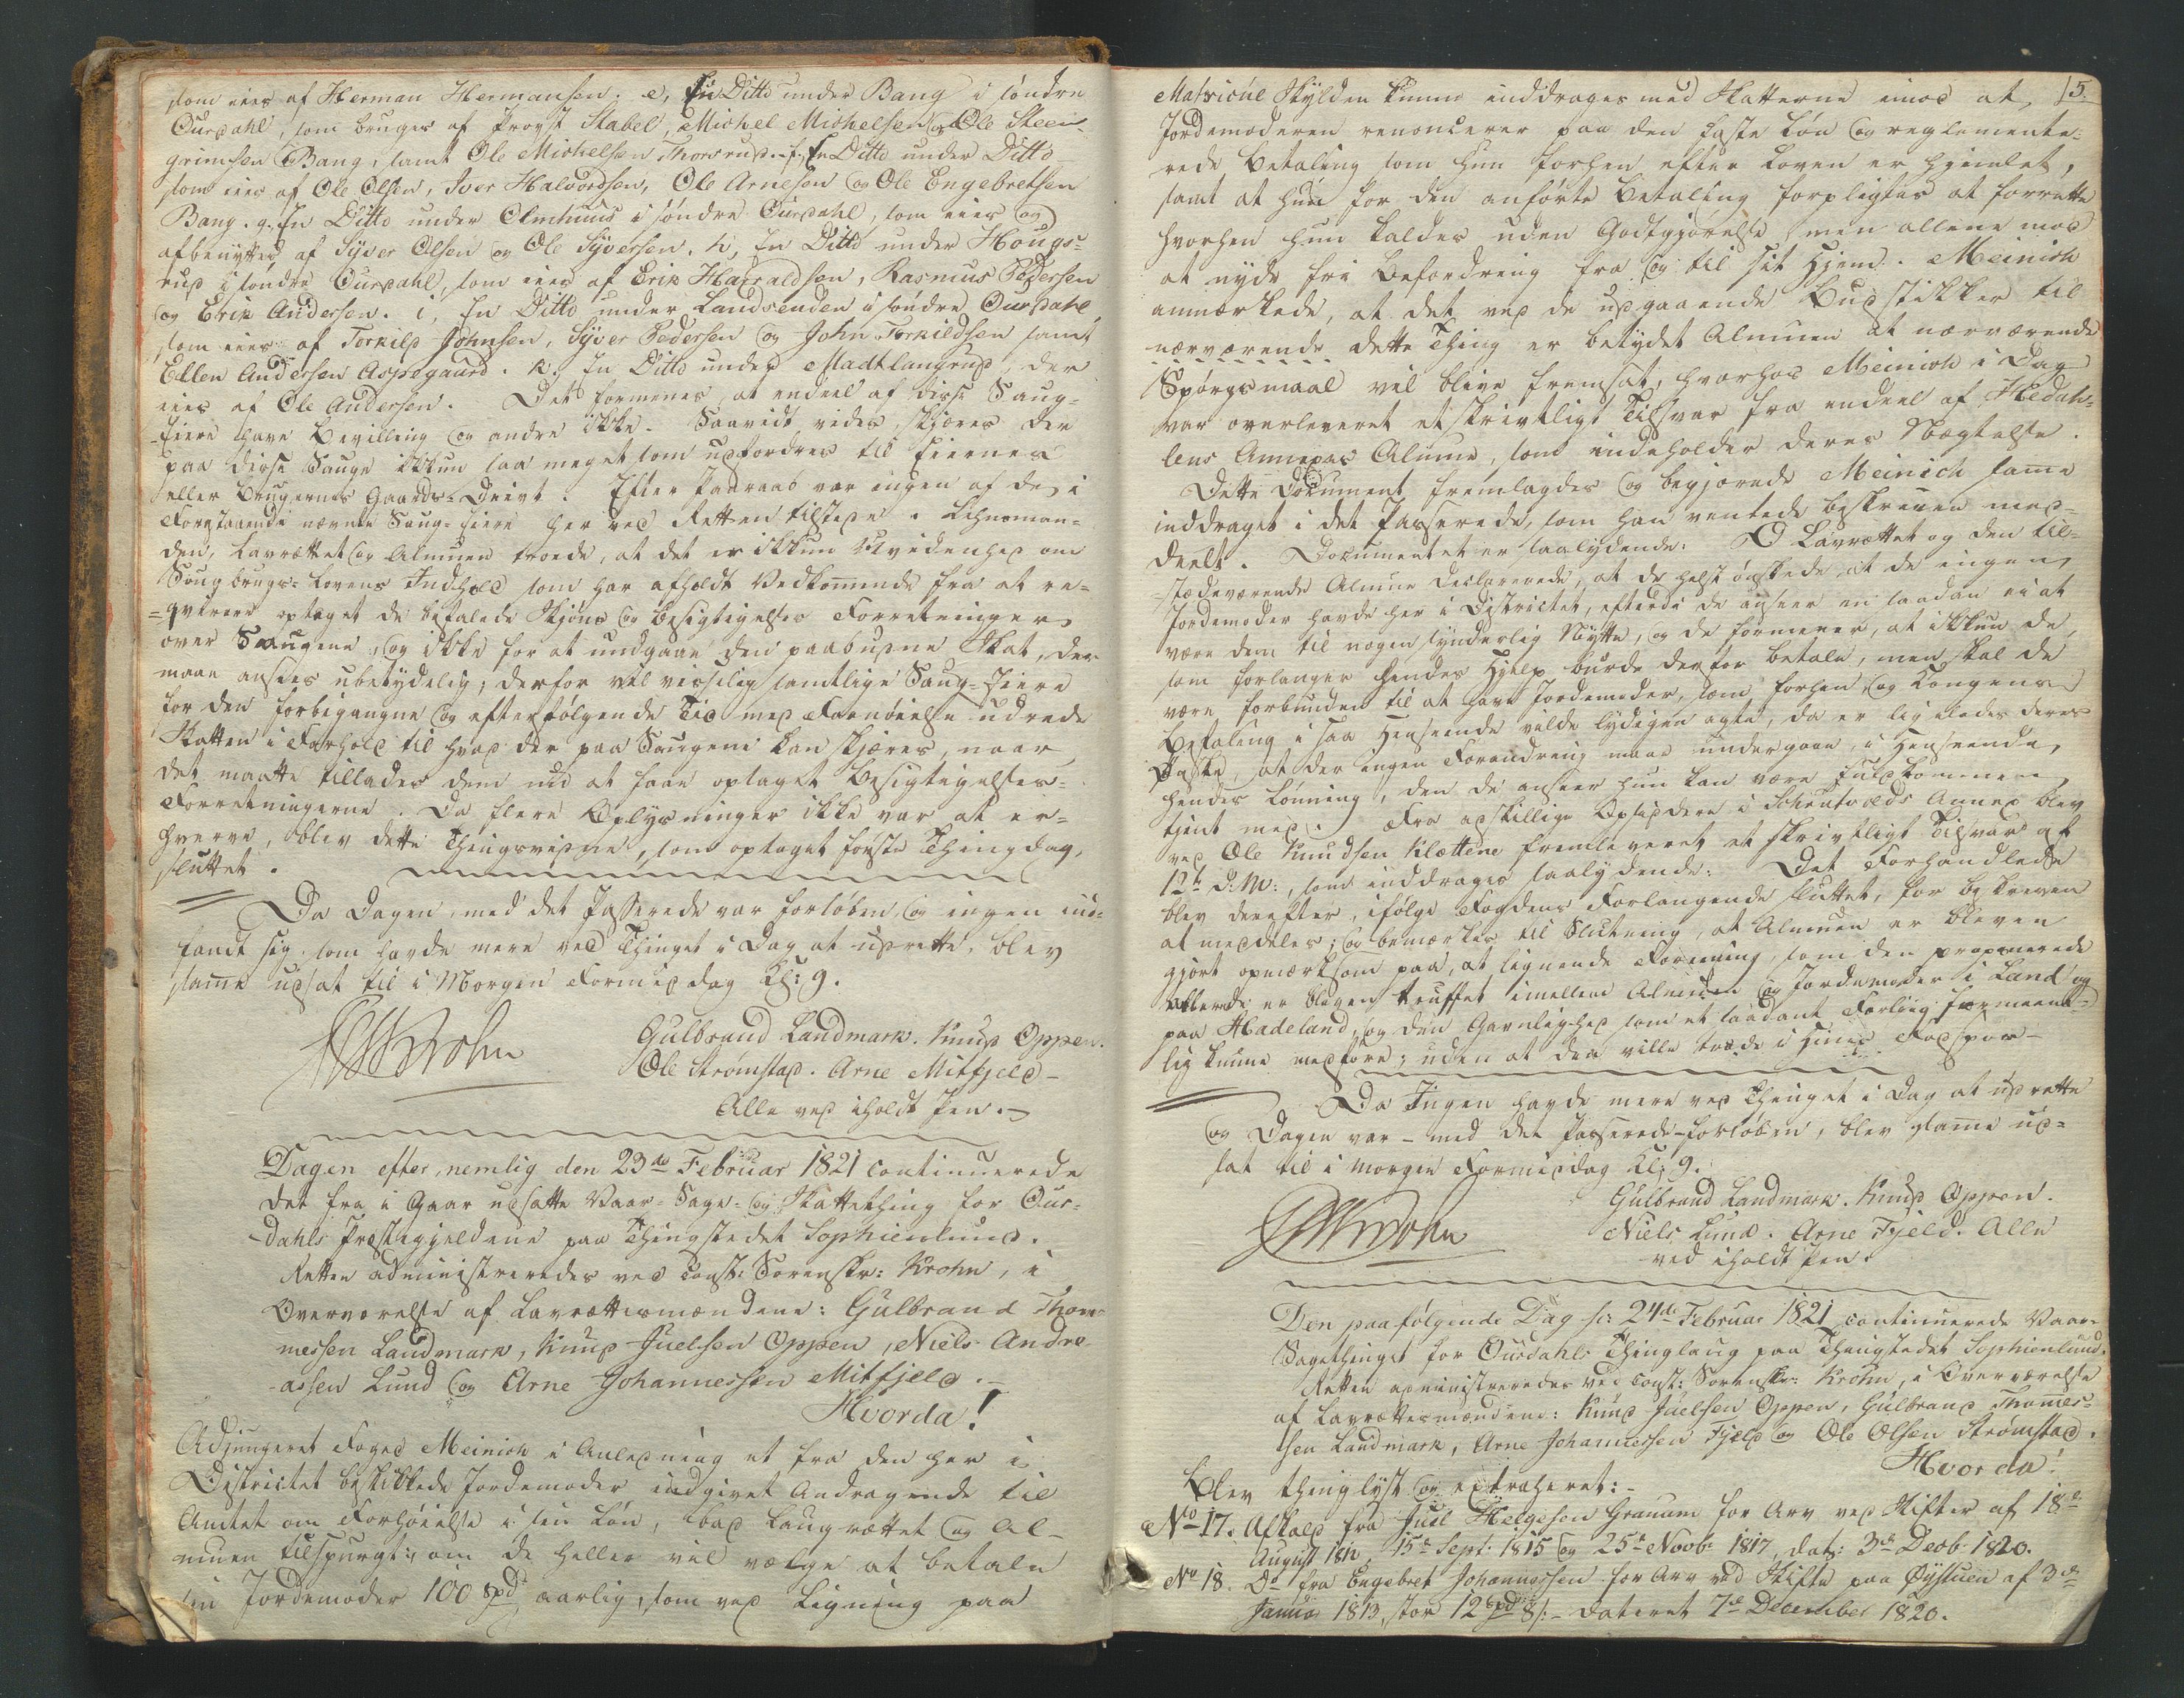 som eies af Herman Hermansen. e, En Ditto under Bang i søndre
Ourdahl, som bruges af Provst Stabel, Michel Michelsen og Ole Steen-
grimsen Bang, samt Ole Michelsen Thorsrud. f, En Ditto under Ditto
som eies af Ole Olsen, Iver Halvordsen, Ole Arnesen og Ole Engebretsen
Bang. g. En Ditto under Olmhuus i søndre Ourdahl, som eies og
afbenyttes af Syver Olsen og Ole Syversen. h, En Ditto under Hougs-
rud i søndre Ourdahl, som eies af Erik Harraldsen, Rasmus Pedersen
og Erik Andersen. i, En Ditto under Landsenden i søndre Ourdahl,
som eies af Torkild Johnsen, Syver Pedersen og John Torkildsen samt
Ellen Andersen Aspegaard. k. En Ditto under Madtlangrud, der
eies af Ole Andersen. Det formenes, at endeel af disse Saug-
Eiere have Bevilling og andre ikke. Saavidt vides, skjæres der
paa disse Sauge ikkun saa meget som udfordres til Eiernes
eller Brugernes Gaards-Drivt. Efter Paaraab var ingen af de i
Forestaaende nævnte Saug-Eiere her ved Retten tilstede. Lehnsman-
den, Lavrættet og Almuen troede, at det er ikkun Uvidenhed om
Saugbrugs-Lovens Indhold som har afholdt Vedkommende fra at re-
qvirere optaget de befalede Skjøns og Besigtigelses Forretninger
over Saugene, og ikke for at undgaae den paabudne Skat, der
maae ansees ubetydelig; derfor vil visselig samtlige Saug-Eiere
for den forbigangne og efterfølgende Tid med Fornøielse udrede
Skatten i Forhold til hvad der paa Saugene kan skjæres, naar
det maatte tillades dem nu at faae optaget Besigtigelses-
Forretningerne. Da flere Oplysninger ikke var at er-
hverve, blev dette Thingsvidne, som optaget første Thingdag,
sluttet.
Da Dagen, med det Passerede var forløben, og ingen ind-
fandt sig, som havde mere ved Thinget i Dag at udrette, blev
samme udsat til i Morgen Formiddag Kl: 9.
Krohn
Gulbrand Landmark. Knud Oppen.
Ole Strømstad. Arne Mitfjeld-
Alle ved iholdt Pen.
Dagen efter, nemlig den 23de Februar 1821 continuerede
det fra i Gaar udsatte Vaar-Sage- og Skattething for Our-
dahls Præstegjeldene paa Thingstedet Sophienlund.
Retten administreredes ved const: Sorenskr: Krohn, i
Overværelse af Lavrættesmændene: Gulbrand Thom-
mesen Landmark, Knud Juelsen Oppen, Niels Andre-
asen Lund og Arne Johannesen Mitfjeld.
Hvorda!
Adjungeret Foged Meinich i Anledning et fra den her i
Districtet beskikkede Jordemoder indgivet Andragende til
Amtet om Forhøielse i sin Løn, bad Laugrættet og Al-
muen tilspurgt: om de heller vil vælge at betale
sin Jordemoder 100 Spd aarlig, som ved Ligning paa
5.
Matricúl Skylden kunne inddrages med Skatterne imod at
Jordemoderen renoncerer paa den faste Løn og reglemente-
rede Betaling som hun forhen efter Loven er hjemlet,
samt at hun for den anførte Betaling forpligtes at forrette
hvorhen hun kaldes uden Godtgjørelse men allene mod
at nyde fri Befordring fra og til sit Hjem. Meinich
anmærkede, at det ved de udgaaende Budstikker til
nærværende dette Thing er betydet Almuen at nærværende
Spørgsmaal vil blive fremsat, hvorhos Meinich i Dag
var overleveret et skrivtligt Tilsvar fra endeel af Hedah-
lens Annexes Almue, som indeholder deres Nægtelse.
Dette Document fremlagdes og begjærede Meinich samme
inddraget i det Passerede, som han ventede beskreven med-
deelt. Documentet er saalydende: O Lavrættet og den til-
stædeværende Almue declarerede, at de helst ønskede at de ingen
Jordemoder havde her i Districtet, efterdi de anseer en saadan ei at
være dem til nogen synderlig Nytte, og de formener, at ikkun de
som forlanger hendes Hjelp burde derfor betale, men skal de
være forbunden til at have Jordemoder, som forhen, og Kongens
Befaling i saa Henseende vilde lydigen agte, da er ligeledes deres
Paastd, at der ingen Forandring maae undergaae, i Henseende
hendes Lønning, den de anseer hun kan være fuldkommen
tjent med. Fra adskillige Opsiddere i Schrutvolds Annex blev
ved Ole Knudsen Klættene fremleveret et skrivtligt Tilsvar af
12te d: M:, som inddrages saalydende: Det Forhandlede
blev derefter, ifølge Fogdens Forlangende sluttet, for beskreven
at meddeles; og bemærkes til Slutning, at Almuen er bleven
gjort opmærksom paa, at lignende Forening, som den proponerede
allerede er bleven truffet imellem Almuen og Jordemoder i Land og
paa Hadeland, og den Gavnlighed som et saadant Forliig formeent-
lig kunne medføre; uden at den ville træde i Hines Fodspor-
Da Ingen havde mere ved Thinget i Dag at udrette
og Dagen var - med det Passerede - forløben, blev samme ud-
sat til i Morgen Formiddag Kl: 9.
Krohn
Gulbrand Landmark. Knud Oppen.
Niels Lund. Arne Fjeld. Alle
ved iholdt Pen.
Den paafølgende Dag s: 24de Februar 1821 continuerede Vaar-
Sagethinget for Ourdahls Thinglaug paa Thingstedet Sophienlund.
Retten administreredes ved const: Sorenskr: Krohn, i Overværelse
af Lavrættesmændene: Knud Juelsen Oppen, Gulbrand Thomes-
sen Landmark, Arne Johannesen Fjeld og Ole Olsen Strømstad.
Hvorda!
Blev thinglyst og extraheret:-
No 17. Afkald fra Juel Helgesen Granum for Arv ved Skifter af 18de
August 1812, 15de Sept: 1815 og 25de Novbr 1817, dat: 3de Decb: 1820.
No 18. Do fra Engebret Johannessen for Arv ved Skifte paa Øystuen af 3de
Januar 1813, stor 12 Spd 8 s:- dateret 7de December 1820.